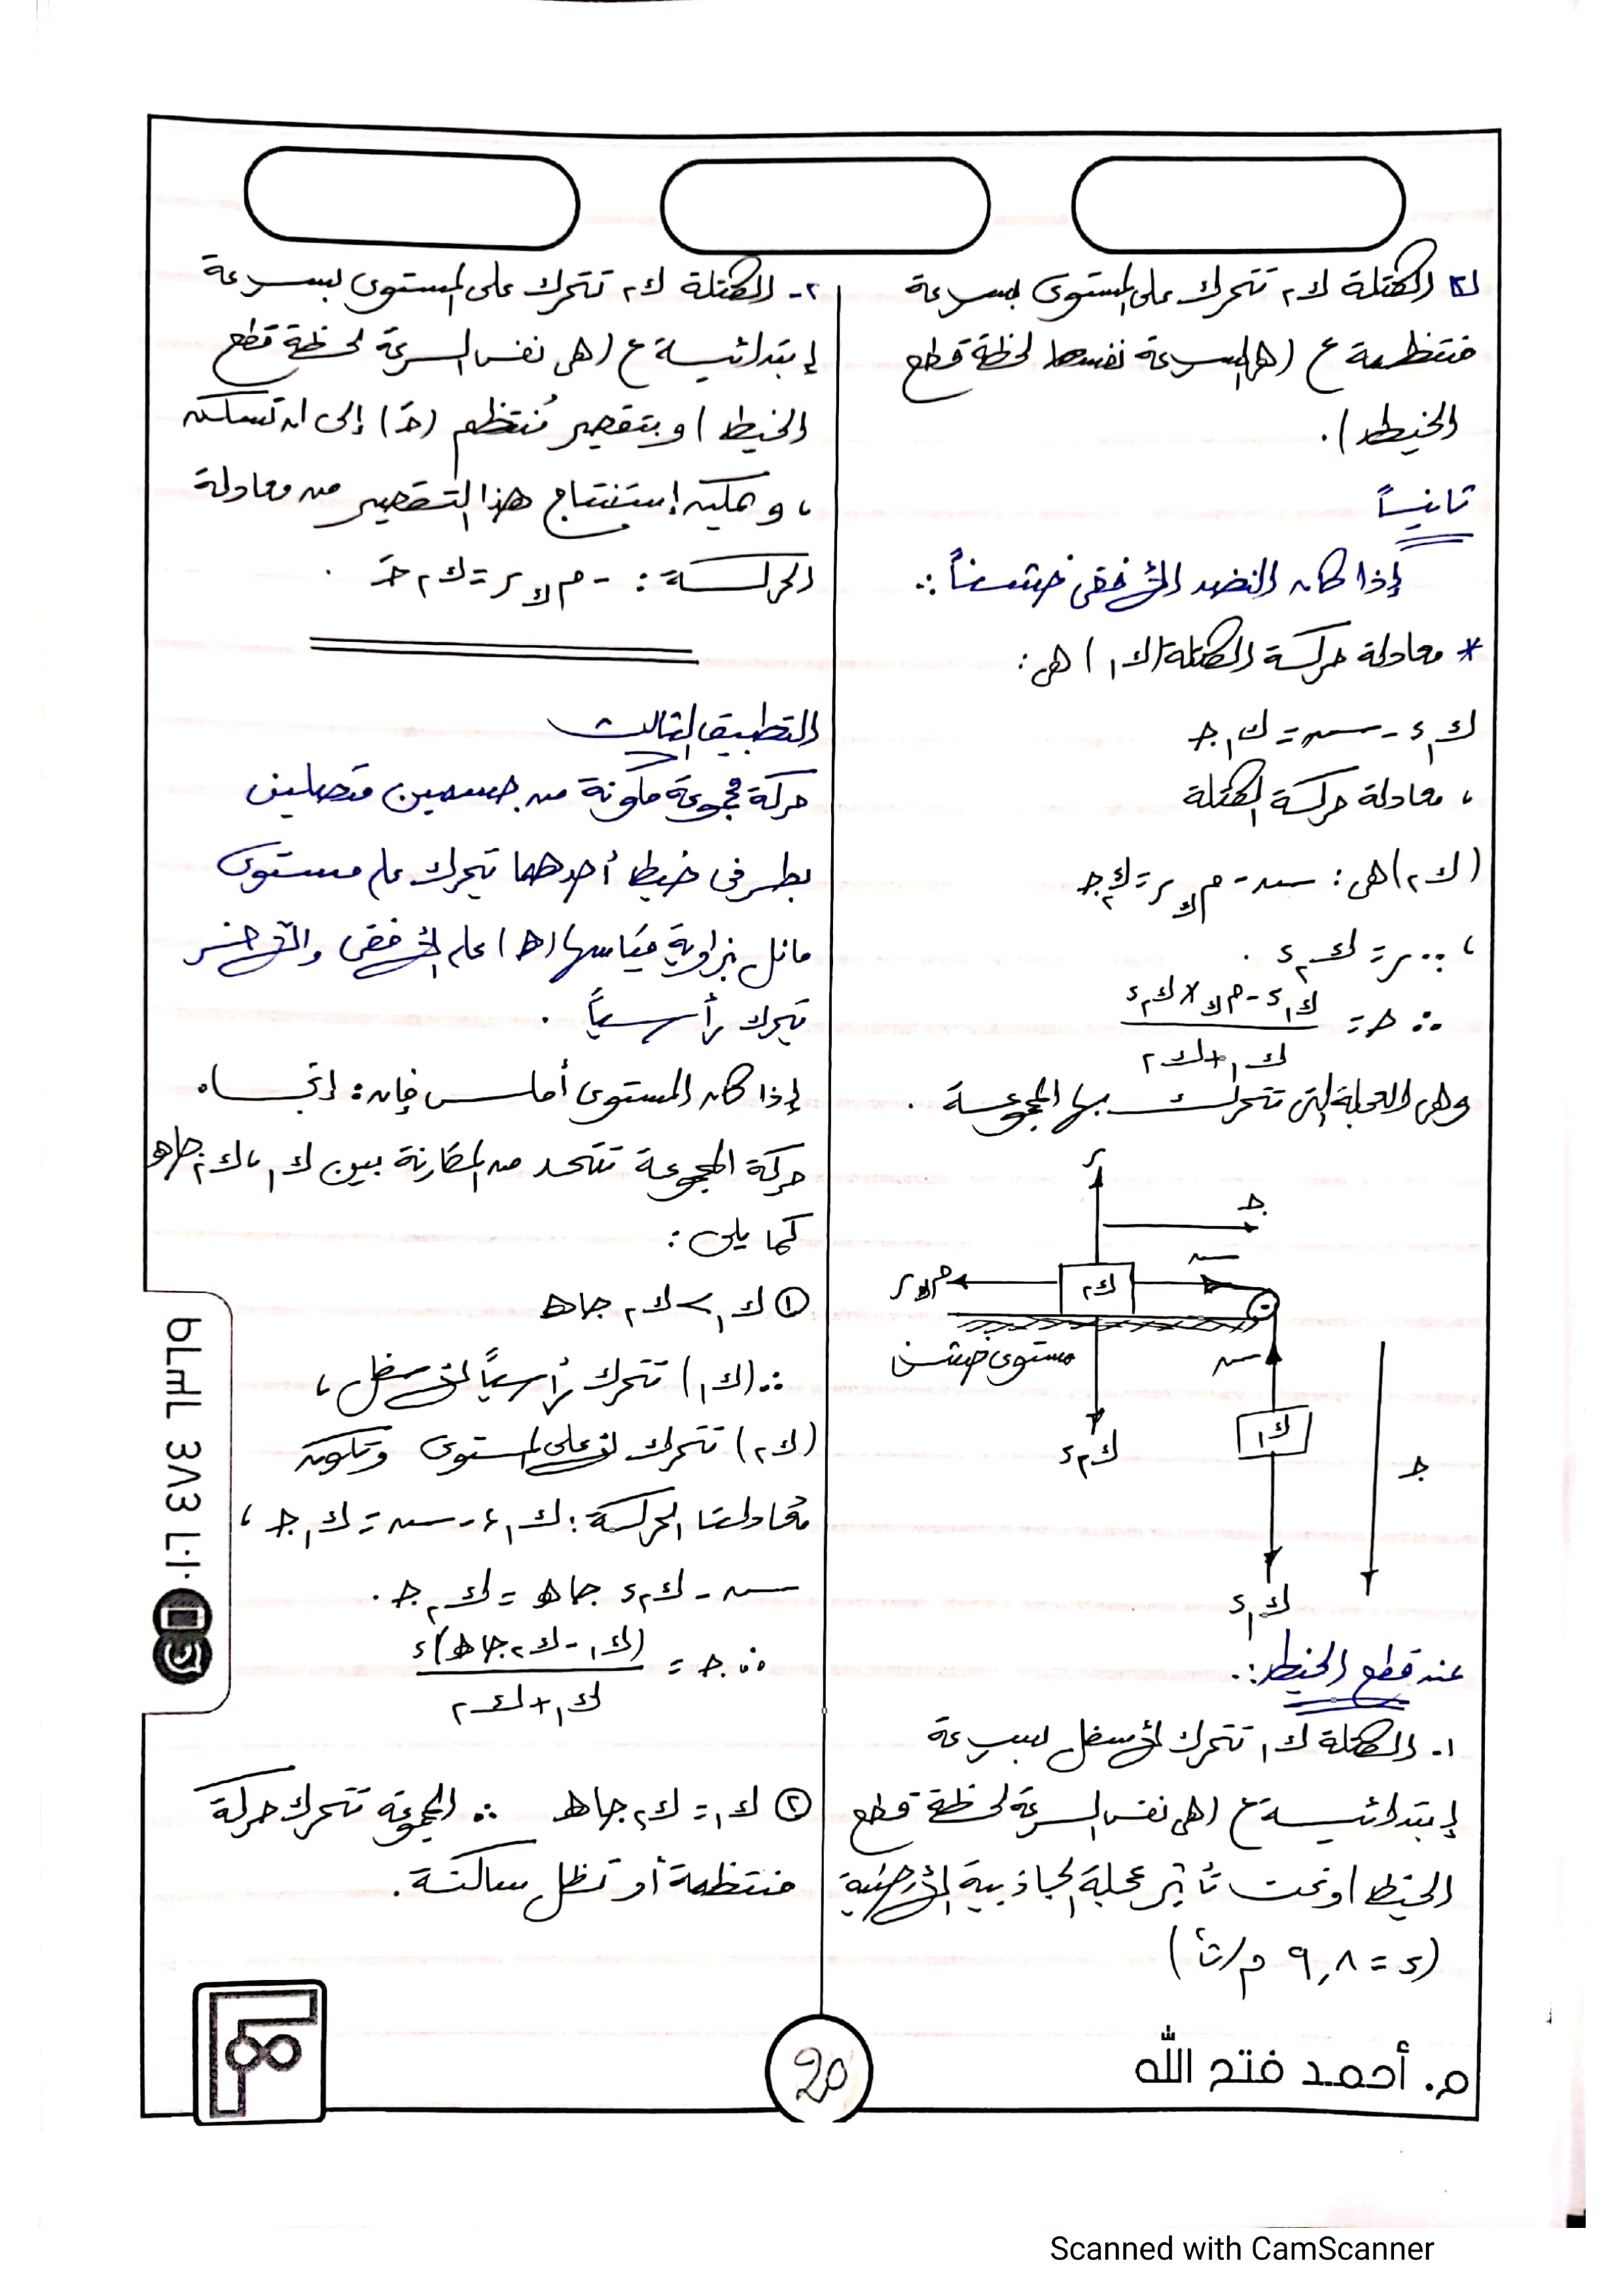 ٢ الكتلة ك٢ تتحرك على المستوى بسرعة
منتظمة ع (هى السرعة نفسها لحظة قطع
الخيط).
ثانياً
إذا كان النضد الأفقى خشناً :.
* معادلة حركة الكتلة (ك١) هى:
ك١ء - سہ = ك١ جـ
، معادلة حركة الكتلة
(ك٢) هى: سہ - م ك ر = ك٢ جـ
، ∵ ر = ك٢ ء .
∴ جـ = (ك١ء - م ك × ك٢ء) / (ك١ + ك٢)
وهى العجلة التى تتحرك بها المجموعة .
ر
جـ
م ك ر
ك٢
سہ
مستوى خشن
سہ
ك١
ك٢ء
جـ
ك١ء
عند قطع الخيط :.
١. الكتلة ك١ تتحرك لأسفل بسرعة
إبتدائيـة ع (هى نفس السرعة لحظة قطع
الخيط) وتحت تأثير عجلة الجاذبية الأرضية
(ء = ٩,٨ م/ث²)
٢- الكتلة ك٢ تتحرك على المستوى بسرعة
إبتدائيـة ع (هى نفس السرعة لحظة قطع
الخيط) وبتقصير مُنتظم (جـَ) إلى ان تسكن
، ويمكن إستنتاج هذا التقصير من معادلة
الحركـة : - م ك ر = ك٢ جـَ .
التطبيق الثالث
حركة مجموعة مكونة من جسمين متصلين
بطرفى خيط أحدهما تيحرك على مستوى
مائل بزاوية قياسها (هـ) على الأفقى والآخر
تيحرك رأسياً .
إذا كان المستوى أملس فإن: إتجـاه
حركة المجموعة تتحدد من المقارنة بين ك١ ، ك٢ جاهـ
كما يلى :
① ك١ > ك٢ جاهـ
∴ (ك١) تتحرك رأسياً لأسفل ،
(ك٢) تتحرك لأعلى المستوى وتكون
مُعادلتا الحركة : ك١ء - سہ = ك١ جـ ،
سہ - ك٢ء جاهـ = ك٢ جـ .
∴ جـ = (ك١ - ك٢ جاهـ)ء / (ك١ + ك٢)
② ك١ = ك٢ جاهـ ∴ المجموعة تتحرك حركة
منتظمة أو تظل ساكنة .
م. أحمد فتح الله
20
Scanned with CamScanner